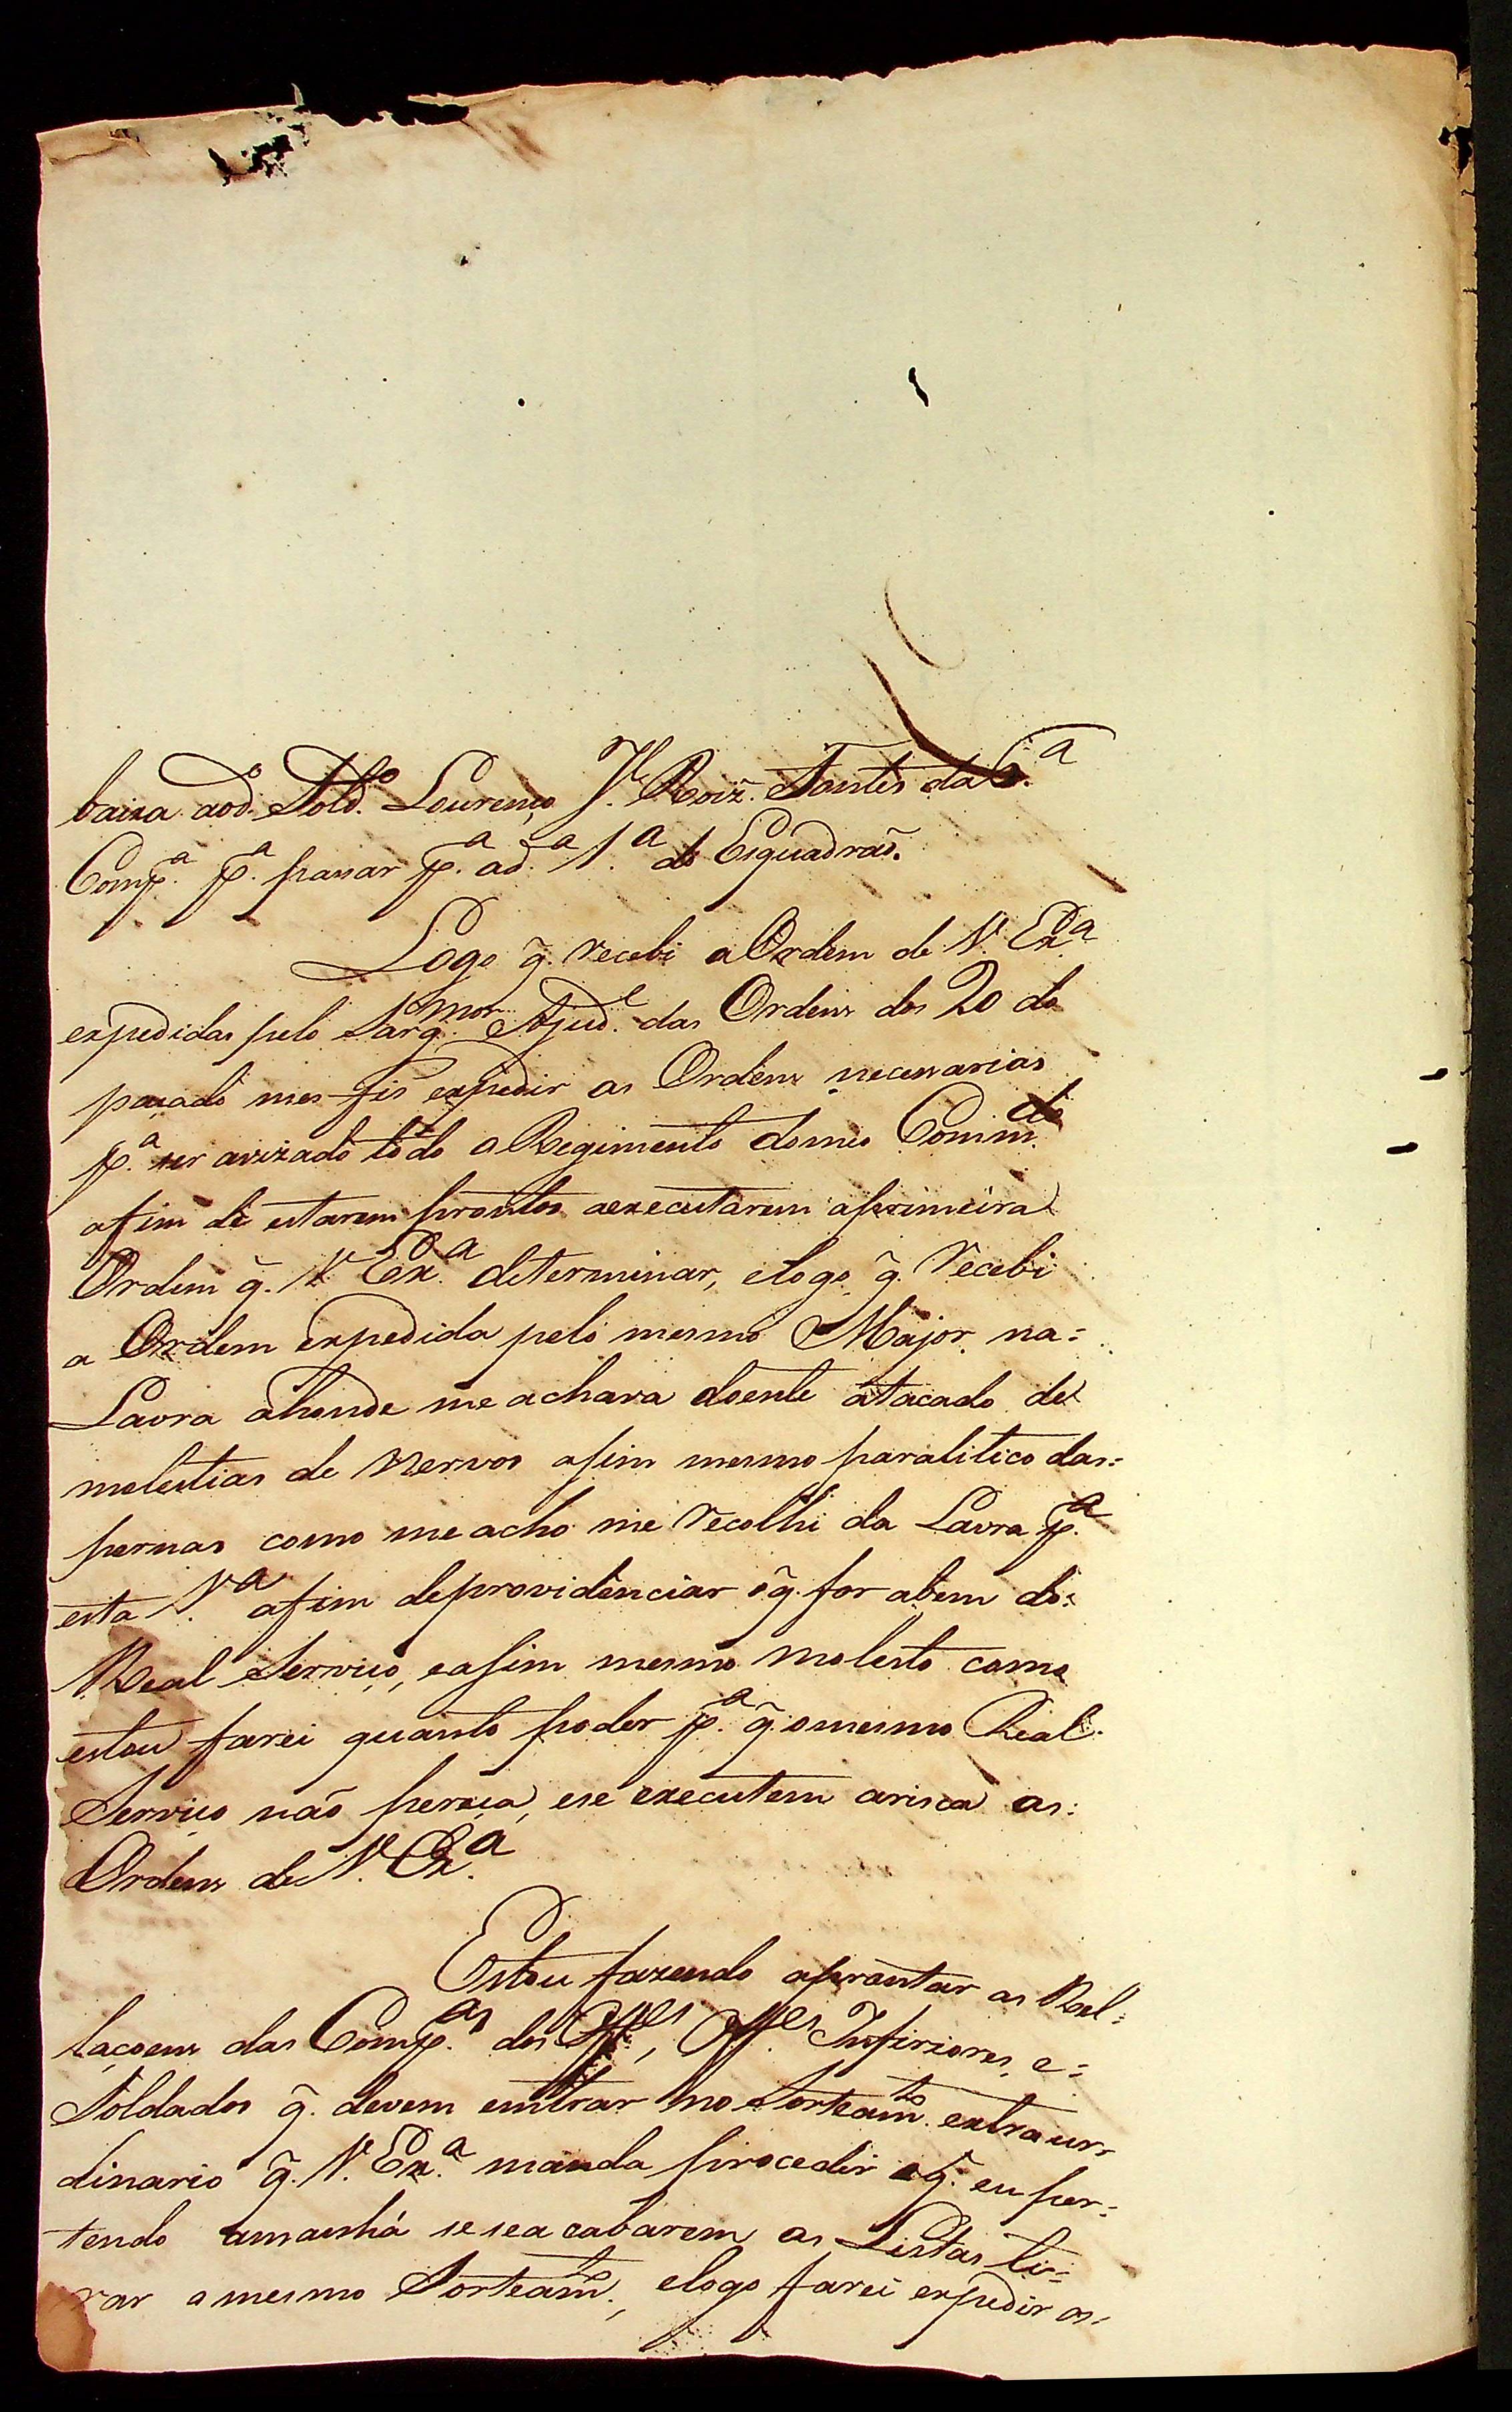 baixa aod.º Sold.º Lourenço J.e Roiz. Fontes da 6.ª
Comp.ª p.ª passar p.ª ad.ª 1.ª do Esquadraõ.
Logo q̃. recebi a Ordem de V. Ex.ª
expedidas pelo Sarg.mor Ajud.e das Ordens dos 20 do
paçado mes fis expedir as Ordens necessarias
p.ª ser avizado todo o Regimento domeo Comm.do
afim de estarem prontos aexecutarem aprimeira
Ordem q̃. V. Ex.ª determinar, elogo q̃. recebi
a Ordem expedida pelo mesmo Major na=
Lavra ahonde me achava doente atacado de
molestias de nervos asim mesmo paralitico das=
pernas como me acho me recolhi da Lavra p.ª
esta V.ª afim deprovidenciar oq̃. for abem do=
Real Serviço, easim mesmo molesto como
estou farei quanto poder p.ª q̃. omesmo Real
Serviço não pereça, ese executem arisca as=
Ordens de V. Ex.ª
Estou fazendo aprontar as Rel=
laçoens das Comp.as dos Off.es, Off.es Inferiores, e=
Soldados q̃. devem entrar no Sorteam.to extraur=
dinario q̃. V. Ex.ª manda proceder oq̃. eu per=
tendo amanhá se sea cabarem as Listas ti=
rar o mesmo Sorteam.to, elogo farei expedir as=